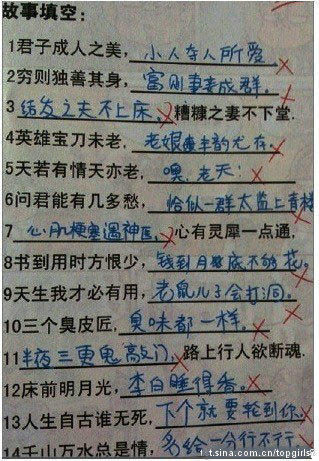 故事填空：
1君子成人之美，小人夺人所爱。
2穷则独善其身，富则妻妾成群。
3结发之夫不上床，糟糠之妻不下堂.
4英雄宝刀未老，老娘丰韵尤存。
5天若有情天亦老，嗅，老天！
6问君能有几多愁，恰似一群太监上青楼
7心肌梗塞遇神医，心有灵犀一点通.
8书到用时方恨少，钱到月底不够花。
9天生我才必有用，老鼠儿子会打洞。
10三个臭皮匠，臭味都一样。
11半夜三更鬼敲门，路上行人欲断魂.
12床前明月光，李白睡得香。
13人生自古谁无死，下个就要轮到你。
14千山万水总是情，多给一分行不行。
t.sina.com.cn/topgirls